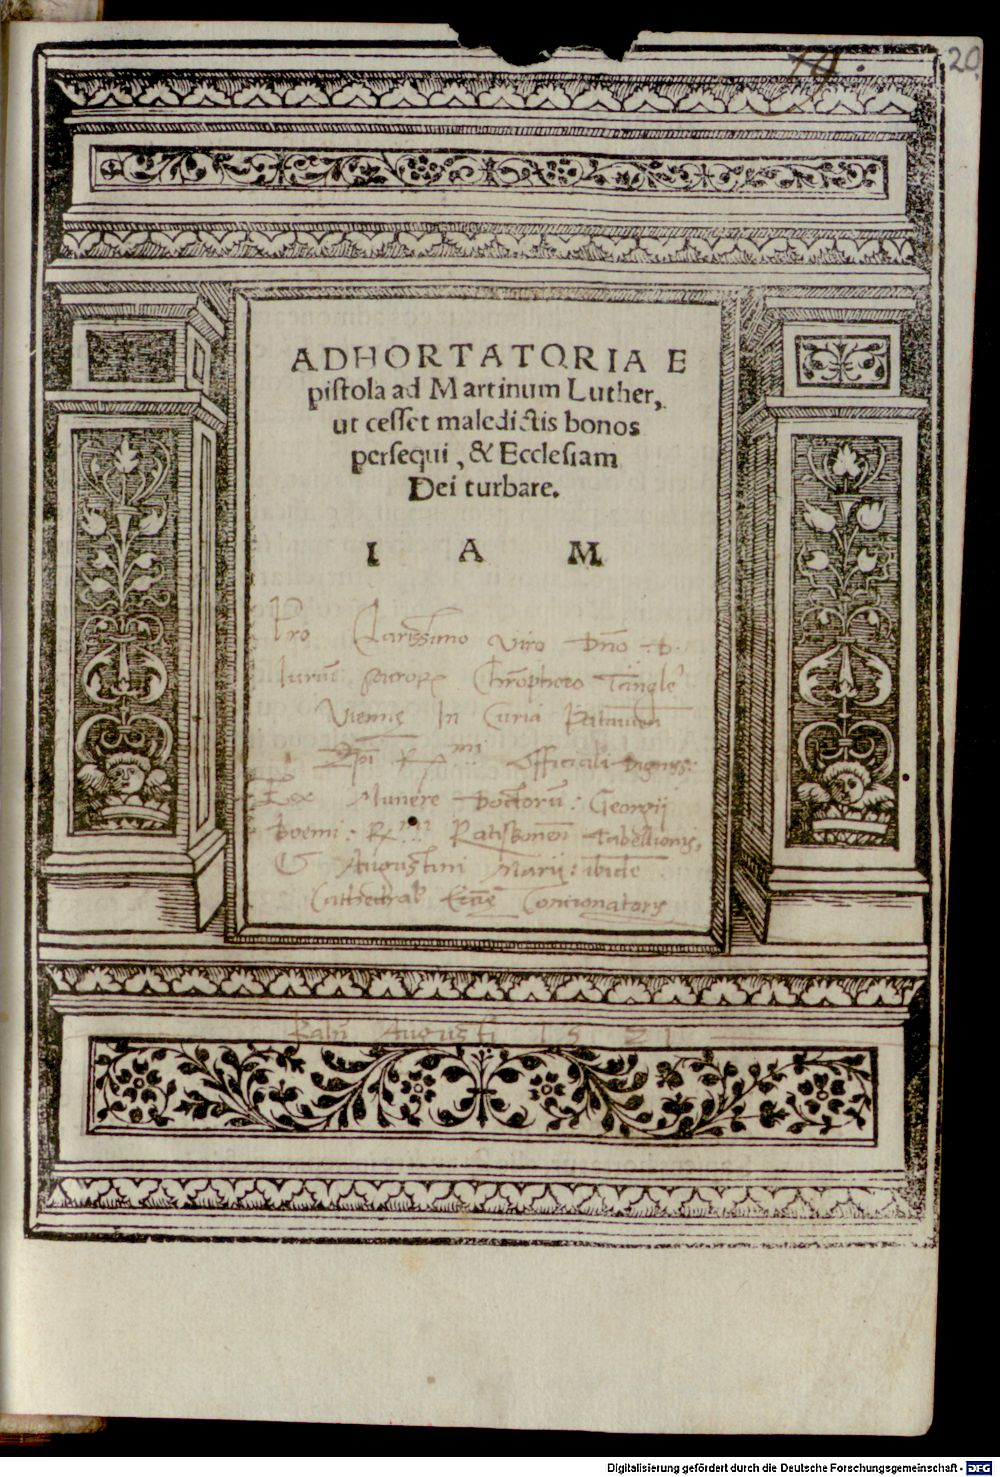 20
ADHORTATORIA E
pistola ad Martinum Luther,
ut cesset maledictis bonos
persequi, & Ecclesiam
Dei turbare.
I A M
Pro Clarissimo viro Dño D.
Viennę In Curia
Officiali Digniss:
Ex Munere Doctorũ: Georgii
Boemi: Ratisbonen̄ Tabellionis,
Augustini Marii: ibidē
Cathedral Concionatoris
Augusti 1521
Digitalisierung gefördert durch die Deutsche Forschungsgemeinschaft - DFG